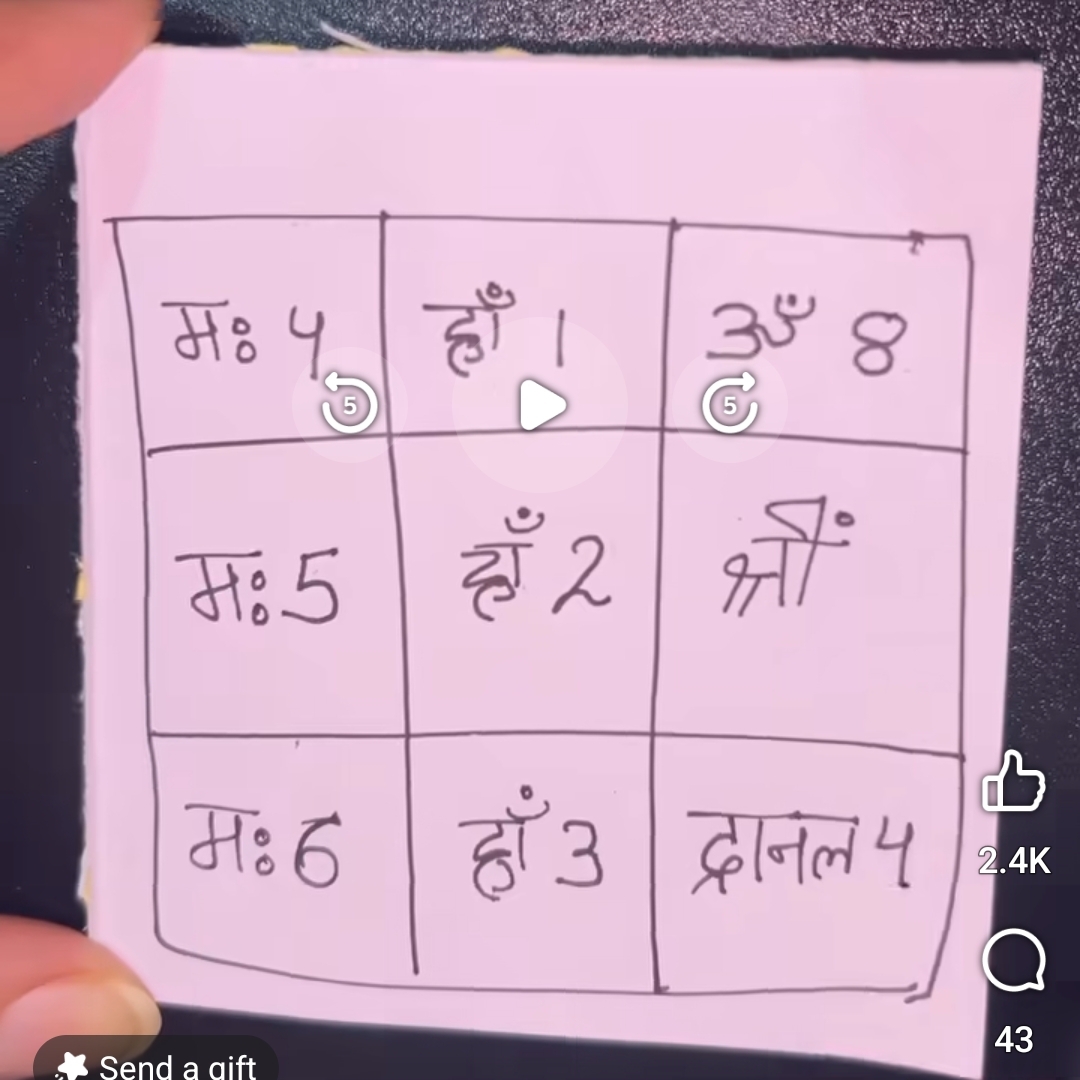 मः 4 हाँ 1 ॐ 8
5 5
मः 5 हाँ 2 श्रीं
मः 6 हाँ 3 द्रानल 4
2.4K
43
Send a gift